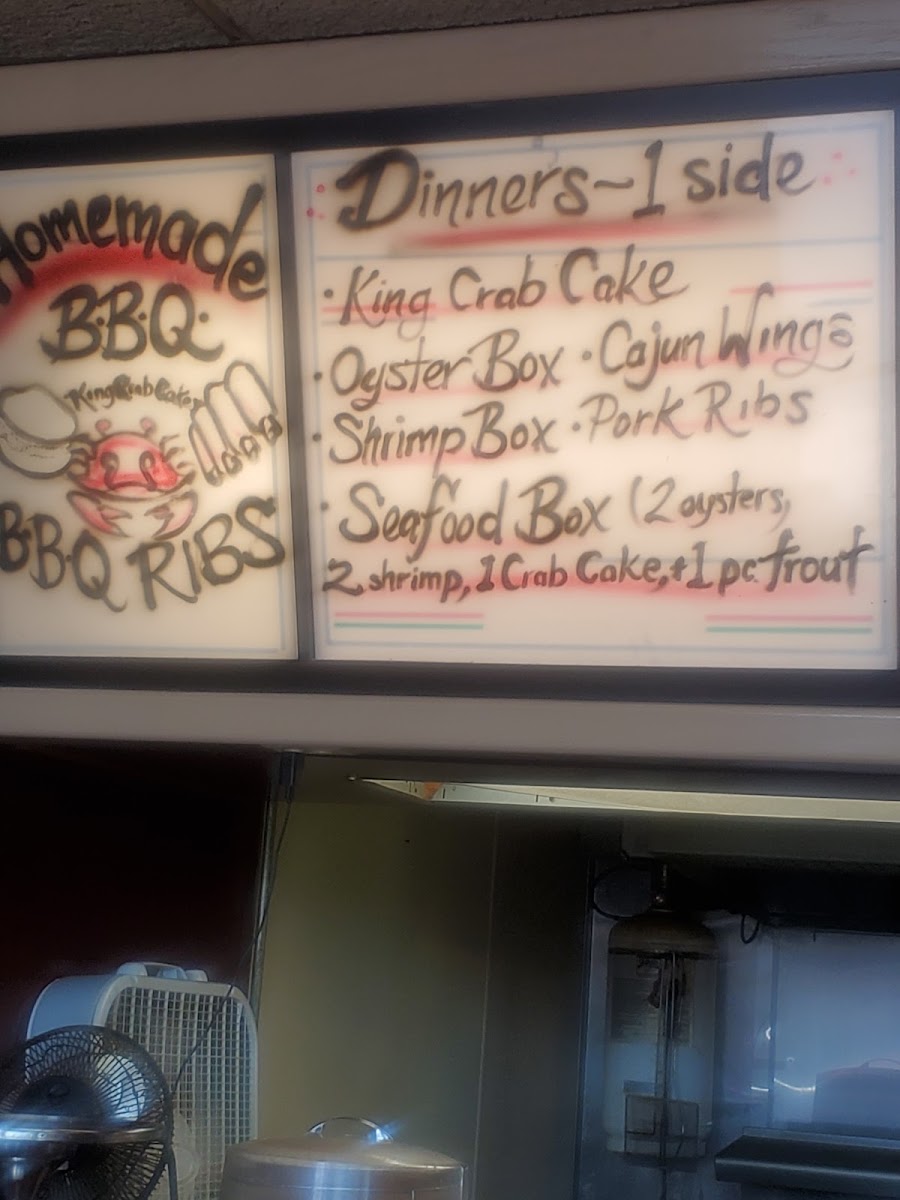 Homemade
B.B.Q.
King Crab Cakes
B.B.Q RIBS
Dinners~1 side
• King Crab Cake
• Oyster Box • Cajun Wings
• Shrimp Box • Pork Ribs
• Seafood Box (2 oysters,
2 shrimp, 1 Crab Cake, + 1 pc. trout